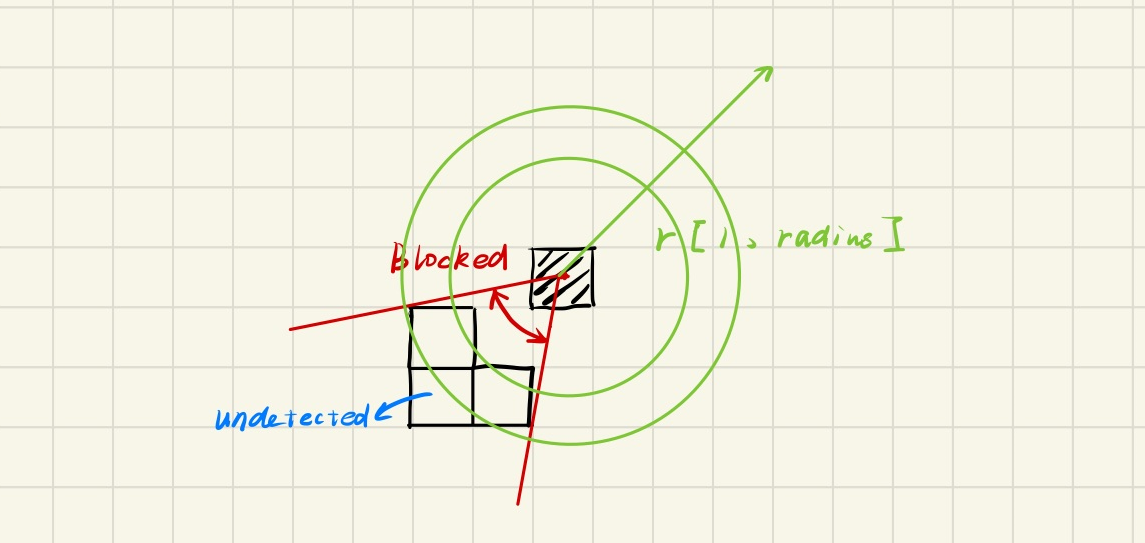 r [ 1, radius ]
Blocked
undetected